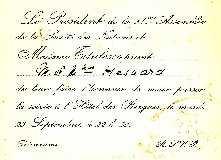 Le Président de la 21me Assemblée
de la Société des Nations et
Madame
prient
M. & Mme
de leur faire l'honneur de venir passer
la soirée à l'Hôtel des Bergues, le mardi
23 Septembre à 22 h.
R. S. V. P.